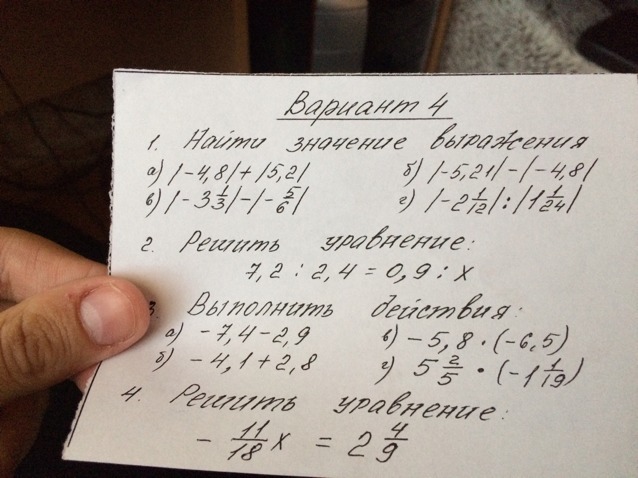 Вариант 4
1. Найти значение выражения
а) |-4,8| + |5,2| б) |-5,21| - |-4,8|
в) |-3 1/3| - |-5/6| г) |-2 1/12| : |1 1/24|
2. Решить уравнение:
7,2 : 2,4 = 0,9 : x
3. Выполнить действия:
а) -7,4 - 2,9 в) -5,8 · (-6,5)
б) -4,1 + 2,8 г) 5 2/5 · (-1 1/19)
4. Решить уравнение:
- 11/18 x = 2 4/9